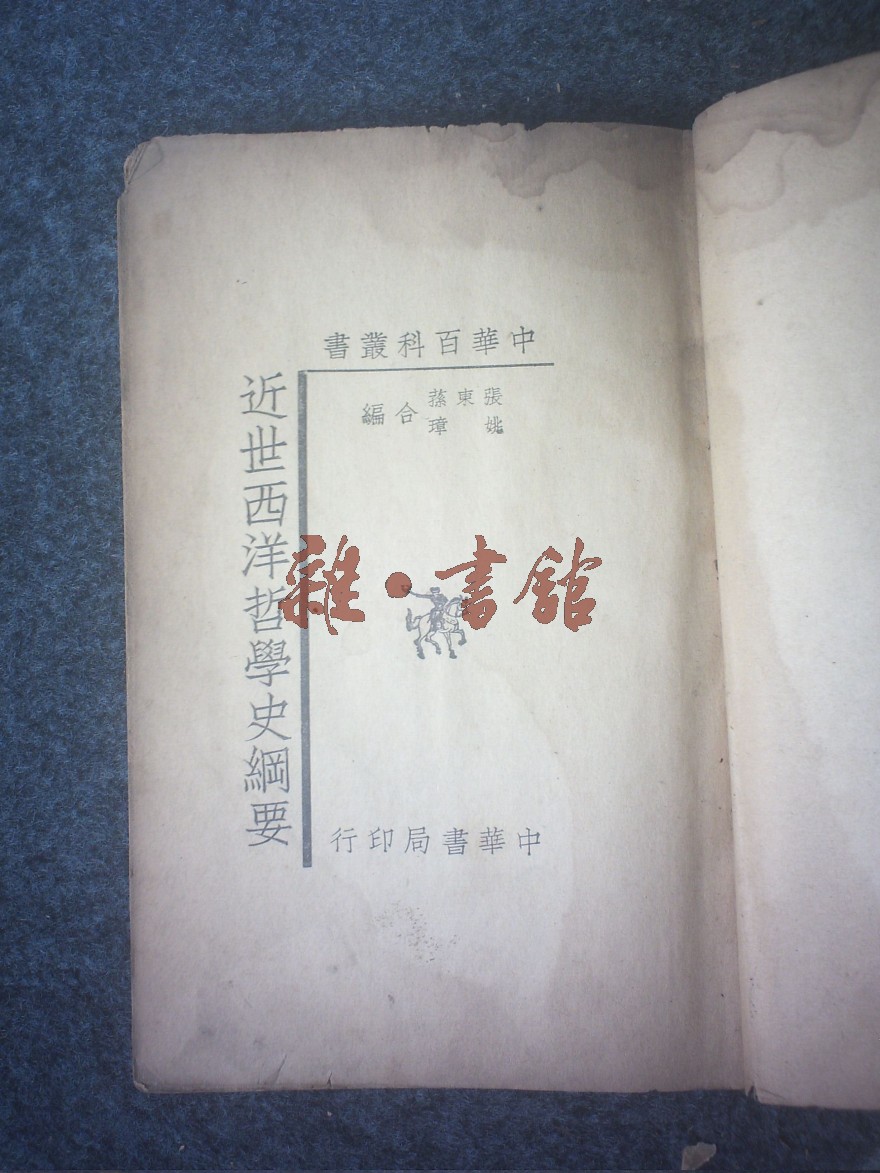 中華百科叢書
張東蓀
姚璋
合編
近世西洋哲學史綱要
雜·書館
中華書局印行